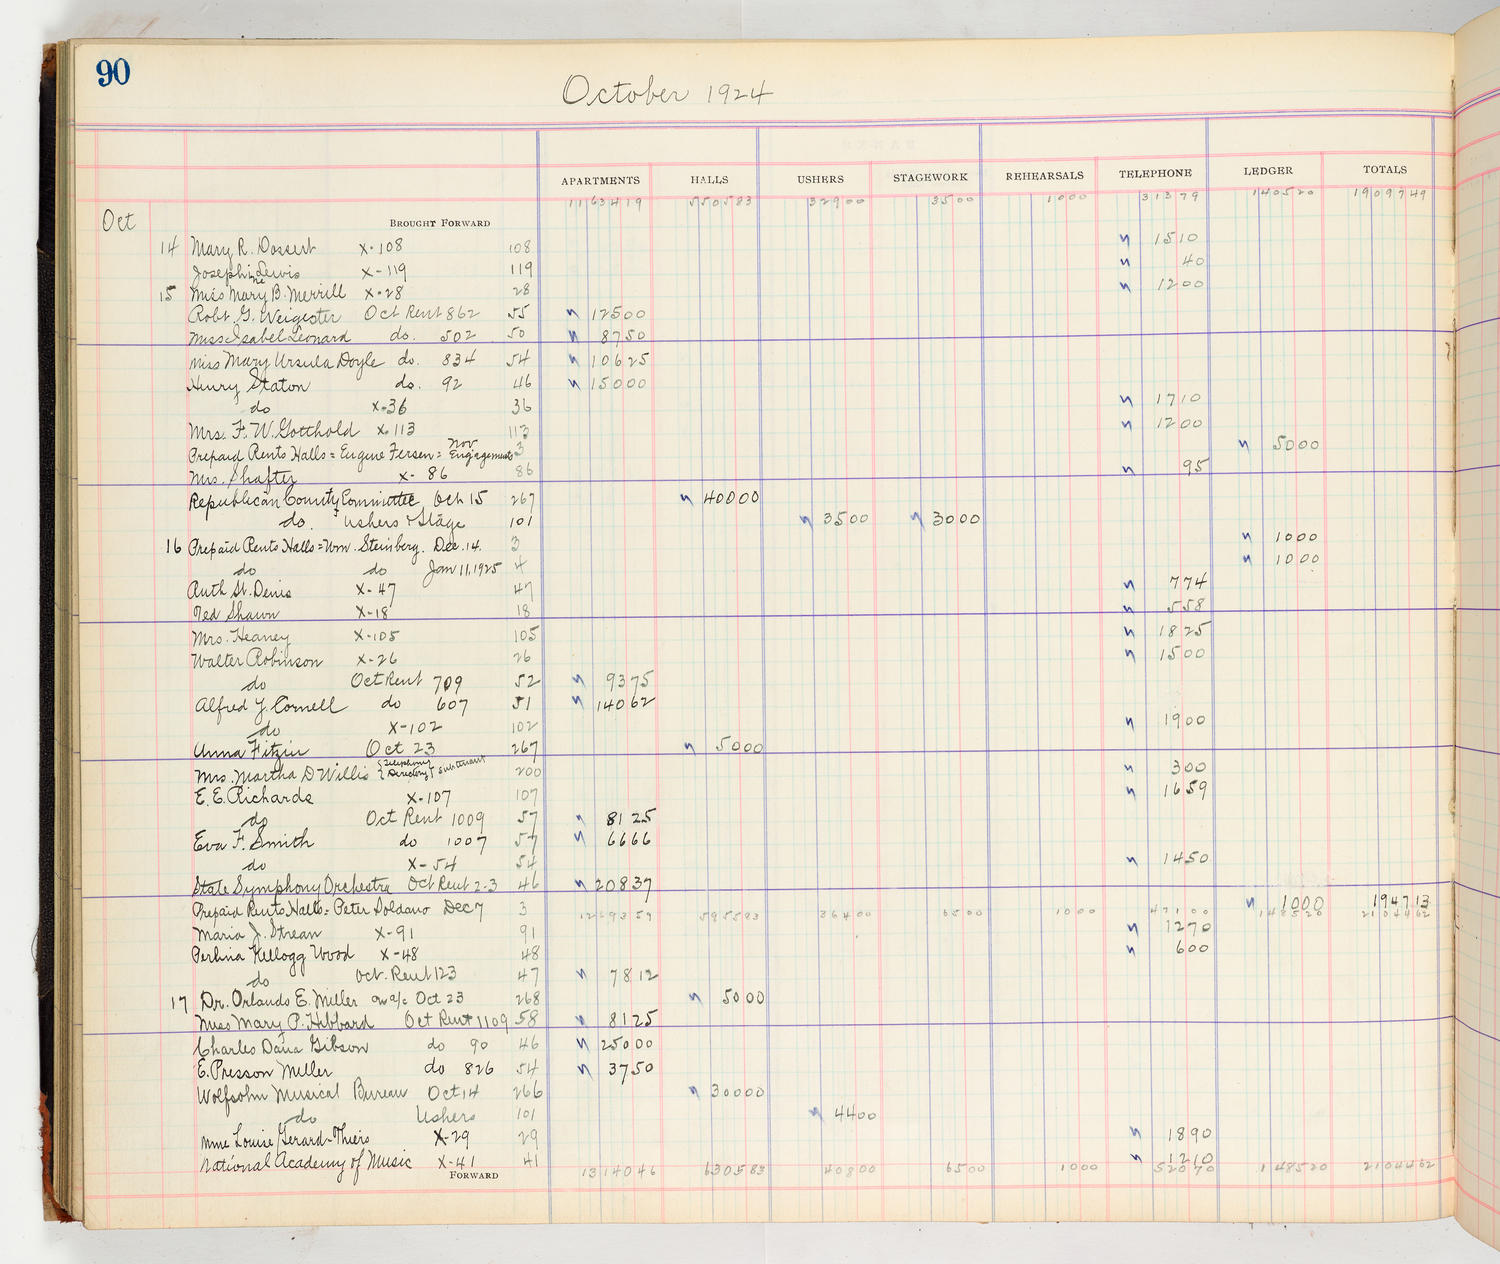 90
October 1924
APARTMENTS HALLS USHERS STAGEWORK REHEARSALS TELEPHONE LEDGER TOTALS
1163419 550583 32900 3500 1000 31379 140520 1909749
Oct BROUGHT FORWARD
14 Mary R. Dossert X-108 108 1510
Josephine Lewis X-119 119 40
15 Miss Mary B. Merrill X-28 28 1200
Robt. G. Weigester Oct Rent 862 55 12500
Miss Isabel Leonard do. 502 50 8750
Miss Mary Ursula Doyle do. 834 54 10625
Henry Staton do. 92 46 15000
do X-36 36 1710
Mrs. F. W. Gotthold X-113 113 1200
Prepaid Rents Halls = Eugene Fersen = Nov Engagements 3 5000
Mrs. Shafter X-86 86 95
Republican County Committee Oct 15 267 40000
do. Ushers & Stage 101 3500 3000
16 Prepaid Rents Halls = Wm. Steinberg. Dec. 14. 3 1000
do do Jan 11, 1925 4 1000
Ruth St. Denis X-47 47 774
Ted Shawn X-18 18 558
Mrs. Heaney X-105 105 1825
Walter Robinson X-26 26 1500
do Oct Rent 709 52 9375
Alfred Y. Cornell do 607 51 14062
do X-102 102 1900
Anna Fitziu Oct 23 267 5000
Mrs. Martha D. Willis {Telephony Directory} subtenant 200 300
E. E. Richards X-107 107 1659
do Oct Rent 1009 57 8125
Eva F. Smith do 1007 57 6666
do X-54 54 1450
State Symphony Orchestra Oct Rent 2-3 46 20837
Prepaid Rents Halls = Peter Soldano Dec 7 3 1000 194713
1269359 595583 36400 6500 1000 47100 148520 2104462
Maria J. Strean X-91 91 1270
Kellogg Wood X-48 48 600
do Oct. Rent 123 47 7812
17 Dr. Orlando E. Miller on a/c Oct 23 268 5000
Miss Mary P. Hibbard Oct Rent 1109 58 8125
Charles Dana Gibson do 90 46 25000
E. Presson Miller do 826 54 3750
Wolfsohn Musical Bureau Oct 14 266 30000
do Ushers 101 4400
Mme Louise Gerard-Thiers X-29 29 1890
National Academy of Music X-41 41 1210
FORWARD 1314046 630583 40800 6500 1000 52070 148520 2104462